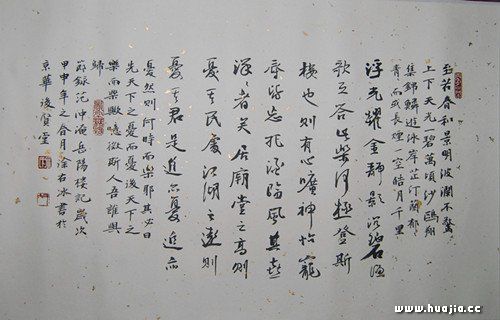 至若春和景明波瀾不驚
上下天光一碧萬頃沙鷗翔
集錦鱗遊泳岸芷汀蘭郁
青而或長煙一空皓月千里
浮光耀金靜影沉璧漁
歌互答此樂何極登斯
樓也則有心曠神怡寵
辱皆忘把酒臨風其喜
洋者矣居廟堂之高則
憂其民處江湖之遠則
憂其君是進亦憂退而
憂然則何時而樂耶其必曰
先天下之憂而憂後天下之
樂而樂歟噫微斯人吾誰與
歸
節錄范仲淹岳陽樓記歲次
甲申年之月右冰書於
京華後賢堂
www.huajia.cc